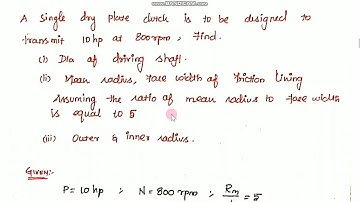 A single dry plate clutch is to be designed to
transmit 10 hp at 800 rpm, Find.
(i) Dia of driving shaft.
(ii) Mean radius, face width of friction lining
Assuming the ratio of mean radius to face width
is equal to 5
(iii) Outer & inner radius.
GIVEN:-
P = 10 hp ; N = 800 rpm ; Rm/ = 5